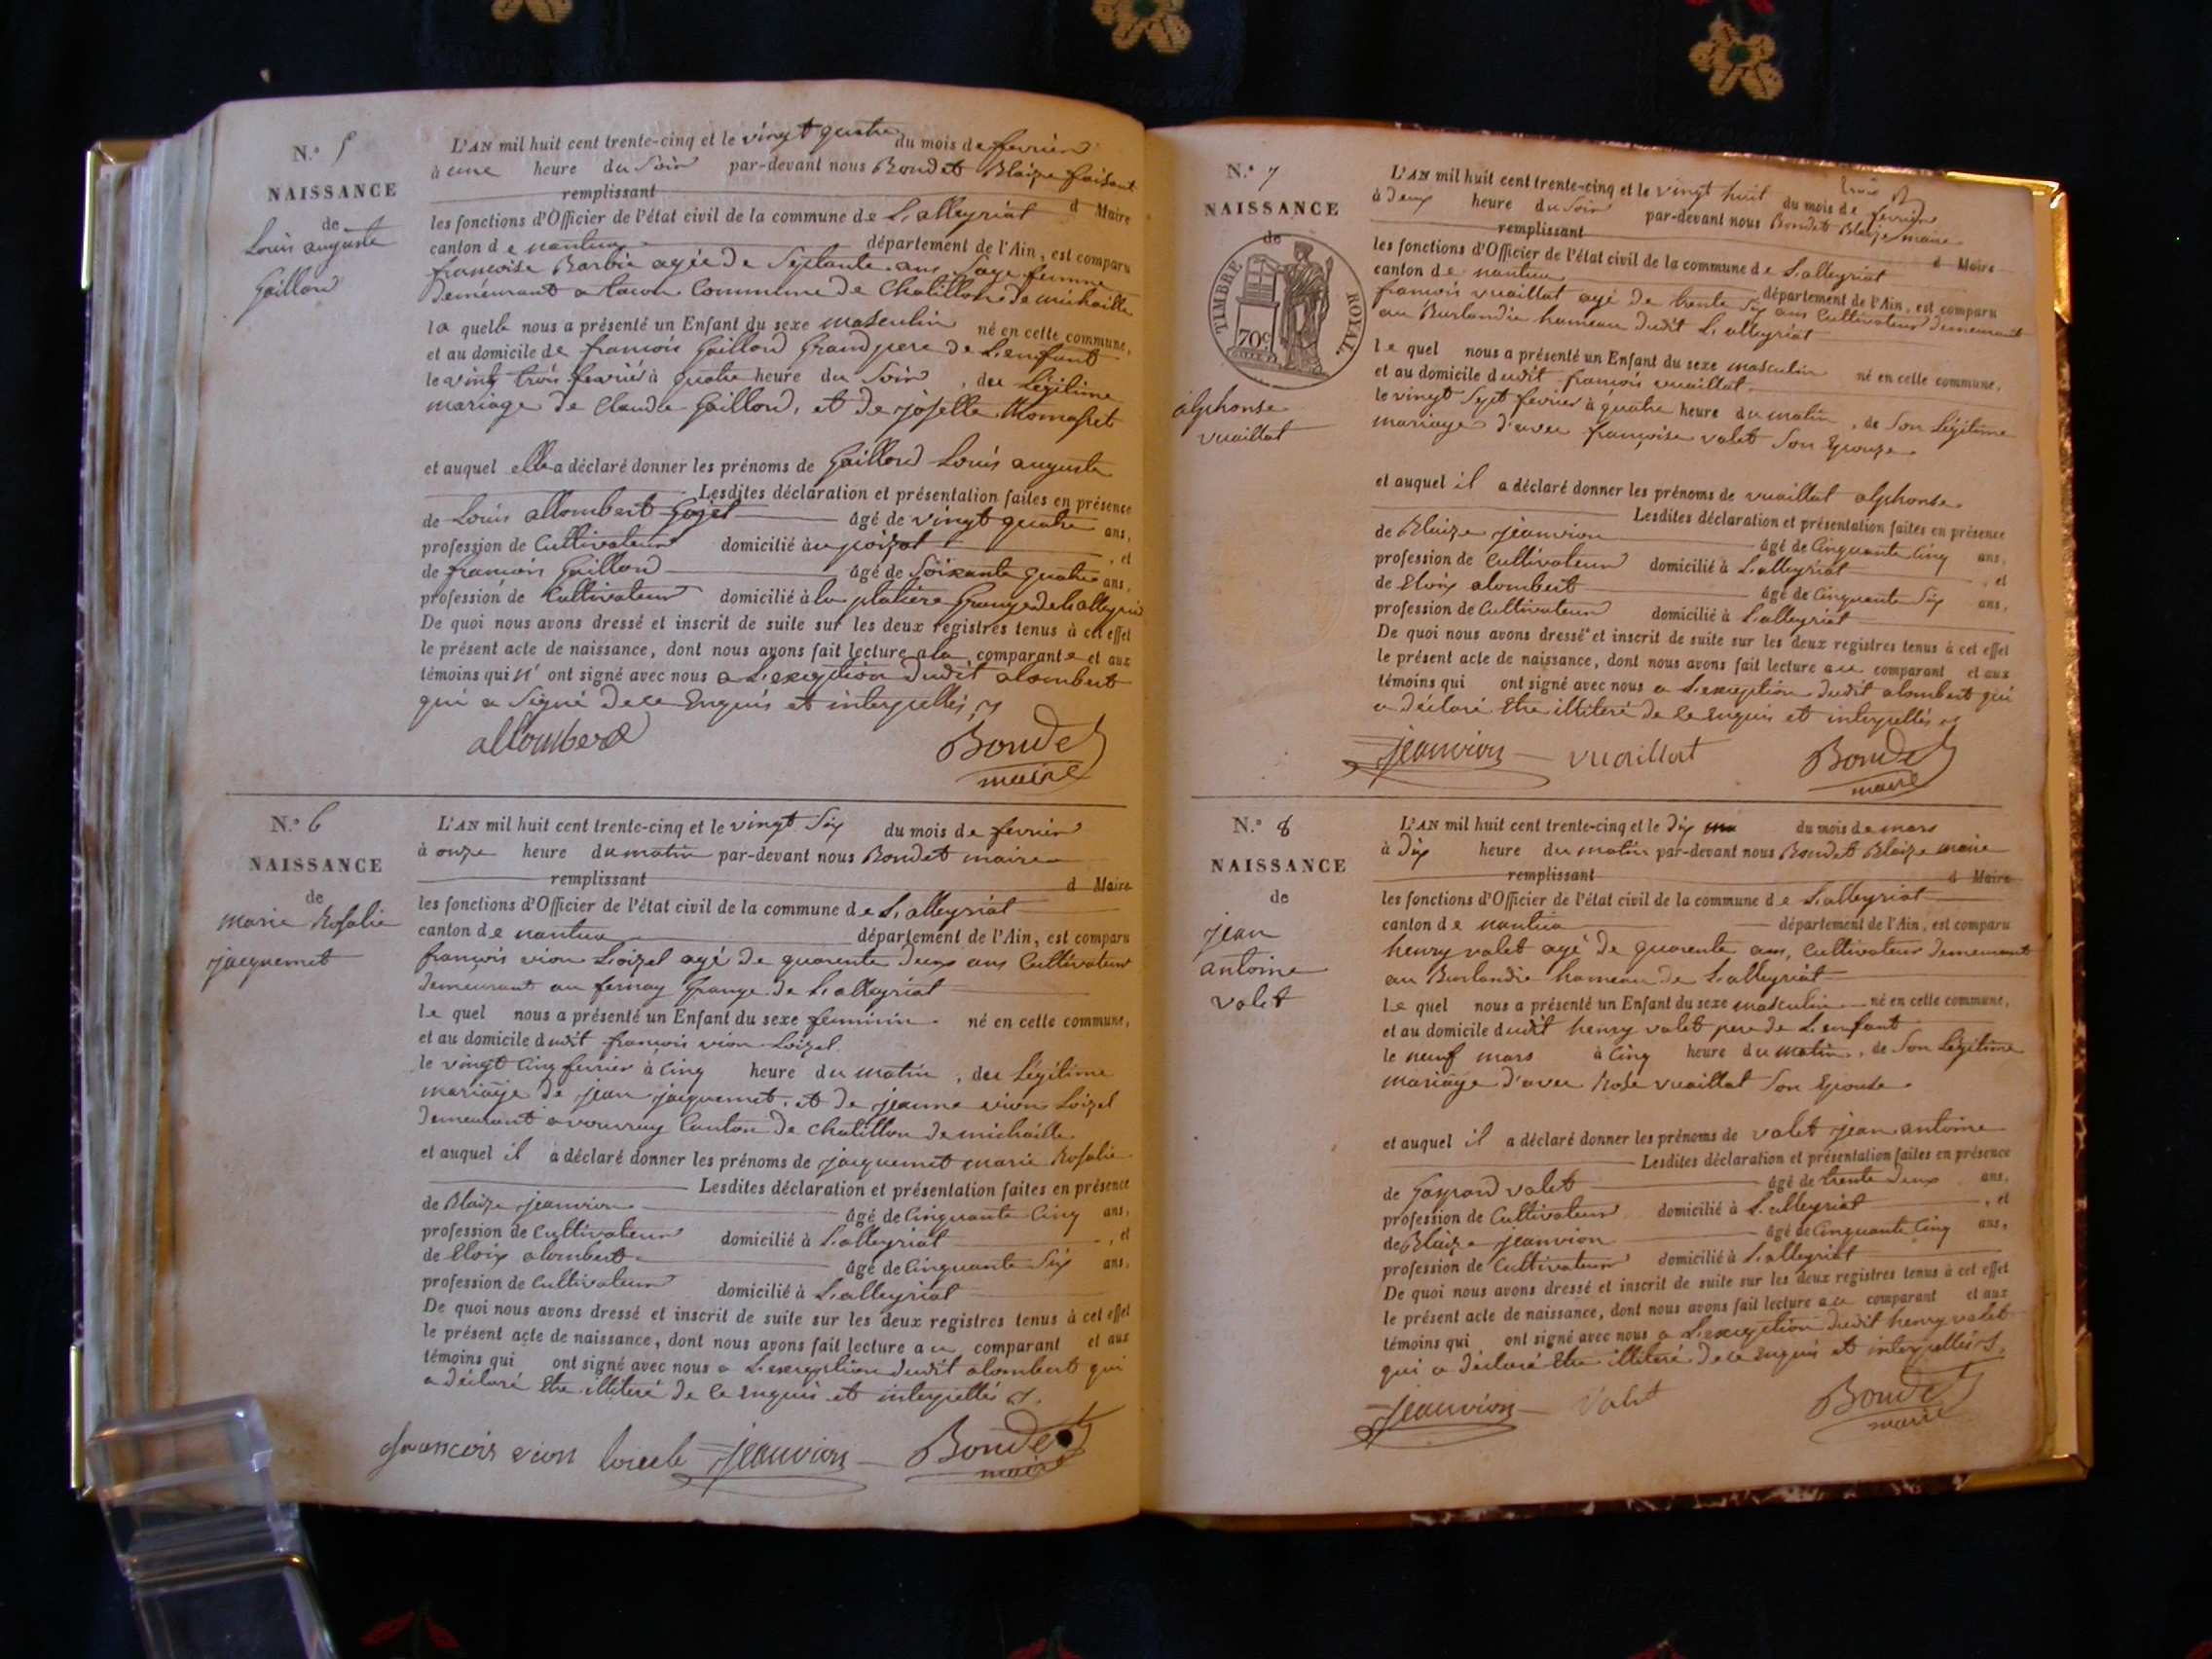 N.° 5
NAISSANCE
de
Louis auguste
Gaillard
L'AN mil huit cent trente-cinq et le vingt quatre du mois de fevrier
à une heure du Soir par-devant nous Bondet Blaize faisant
remplissant d Maire
les fonctions d'Officier de l'état civil de la commune de L'alleyriat
canton de nantua département de l'Ain, est comparu
francoise Barbie agée de Septante ans Sage femme
demeurant a tacon Commune de Chatillon de michaille
la quelle nous a présenté un Enfant du sexe masculin né en cette commune,
et au domicile de francois Gaillard Grand pere de L'enfant
le vingt trois fevrier à quatre heure du Soir, du Légitime
mariage de Claude Gaillard, et de josette
et auquel elle a déclaré donner les prénoms de Gaillard Louis auguste
Lesdites déclaration et présentation faites en présence
de Louis allombert Goget âgé de vingt quatre ans,
profession de Cultivateur domicilié au poizat, et
de francois Gaillard âgé de Soixante quatre ans,
profession de Cultivateur domicilié à la platière Grange de L'alleyriat
De quoi nous avons dressé et inscrit de suite sur les deux registres tenus à cet effet
le présent acte de naissance, dont nous avons fait lecture a la comparante et aux
témoins qui n' ont signé avec nous a L'exception dudit alombert
qui a Signé de ce Enquis et interpellés
allombert Bondet
maire
N.° 6
NAISSANCE
de
marie Rosalie
jacquemet
L'AN mil huit cent trente-cinq et le vingt Six du mois de fevrier
à onze heure du matin par-devant nous Bondet maire
remplissant d Maire
les fonctions d'Officier de l'état civil de la commune de L'alleyriat
canton de nantua département de l'Ain, est comparu
françois vion Loizel agé de quarente deux ans Cultivateur
demeurant au fernay Grange de L'alleyriat
le quel nous a présenté un Enfant du sexe feminin né en cette commune,
et au domicile dudit francois vion Loizel
le vingt Cinq fevrier à Cinq heure du matin, du Légitime
mariage de jean jacquemet, et de jeanne vion Loizel
demeurant a vouvray Canton de Chatillon de michaille
et auquel il a déclaré donner les prénoms de jacquemet marie Rosalie
Lesdites déclaration et présentation faites en présence
de Blaize jeanvion âgé de Cinquante Cinq ans,
profession de Cultivateur domicilié à L'alleyriat, et
de Eloix alombert âgé de Cinquante Six ans,
profession de Cultivateur domicilié à L'alleyriat
De quoi nous avons dressé et inscrit de suite sur les deux registres tenus à cet effet
le présent acte de naissance, dont nous avons fait lecture au comparant et aux
témoins qui ont signé avec nous a L'exception dudit alombert qui
a déclaré Etre illiteré de ce Enquis et interpellés
francois vion loizele jeanvion Bondet
maire
N.° 7
NAISSANCE
de
TIMBRE ROYAL
70c
alphonse
vuaillat
L'AN mil huit cent trente-cinq et le vingt huit du mois de fevrier
à deux heure du Soir par-devant nous Bondet Blaize maire
remplissant d Maire
les fonctions d'Officier de l'état civil de la commune de L'alleyriat
canton de nantua département de l'Ain, est comparu
francois vuaillat agé de trente Six ans Cultivateur demeurant
au Burlandie hameau dudit L'alleyriat
le quel nous a présenté un Enfant du sexe masculin né en cette commune,
et au domicile dudit francois vuaillat
le vingt Sept fevrier à quatre heure du matin, de Son Légitime
mariage d'avec françoise valet Son Epouze
et auquel il a déclaré donner les prénoms de vuaillat alphonse
Lesdites déclaration et présentation faites en présence
de Blaize jeanvion âgé de Cinquante Cinq ans,
profession de Cultivateur domicilié à L'alleyriat, et
de Eloix alombert âgé de Cinquante Six ans,
profession de Cultivateur domicilié à L'alleyriat
De quoi nous avons dressé et inscrit de suite sur les deux registres tenus à cet effet
le présent acte de naissance, dont nous avons fait lecture au comparant et aux
témoins qui ont signé avec nous a L'exception dudit alombert qui
a déclaré Etre illiteré de ce Enquis et interpellés
jeanvion vuaillat Bondet
maire
N.° 8
NAISSANCE
de
jean
antoine
valet
L'AN mil huit cent trente-cinq et le dix du mois de mars
à dix heure du matin par-devant nous Bondet Blaize maire
remplissant d Maire
les fonctions d'Officier de l'état civil de la commune de L'alleyriat
canton de nantua département de l'Ain, est comparu
henry valet agé de quarente ans, Cultivateur demeurant
au Burlandie hameau de L'alleyriat
le quel nous a présenté un Enfant du sexe masculin né en cette commune,
et au domicile dudit henry valet pere de L'enfant
le neuf mars à Cinq heure du matin, de Son Légitime
mariage d'avec Rose vuaillat Son Epouse
et auquel il a déclaré donner les prénoms de valet jean antoine
Lesdites déclaration et présentation faites en présence
de Gaspard valet âgé de trente deux ans,
profession de Cultivateur domicilié à L'alleyriat, et
de Blaize jeanvion âgé de Cinquante Cinq ans,
profession de Cultivateur domicilié à L'alleyriat
De quoi nous avons dressé et inscrit de suite sur les deux registres tenus à cet effet
le présent acte de naissance, dont nous avons fait lecture au comparant et aux
témoins qui ont signé avec nous a L'exception dudit henry valet
qui a déclaré Etre illiteré de ce Enquis et interpellés
jeanvion Valet Bondet
maire